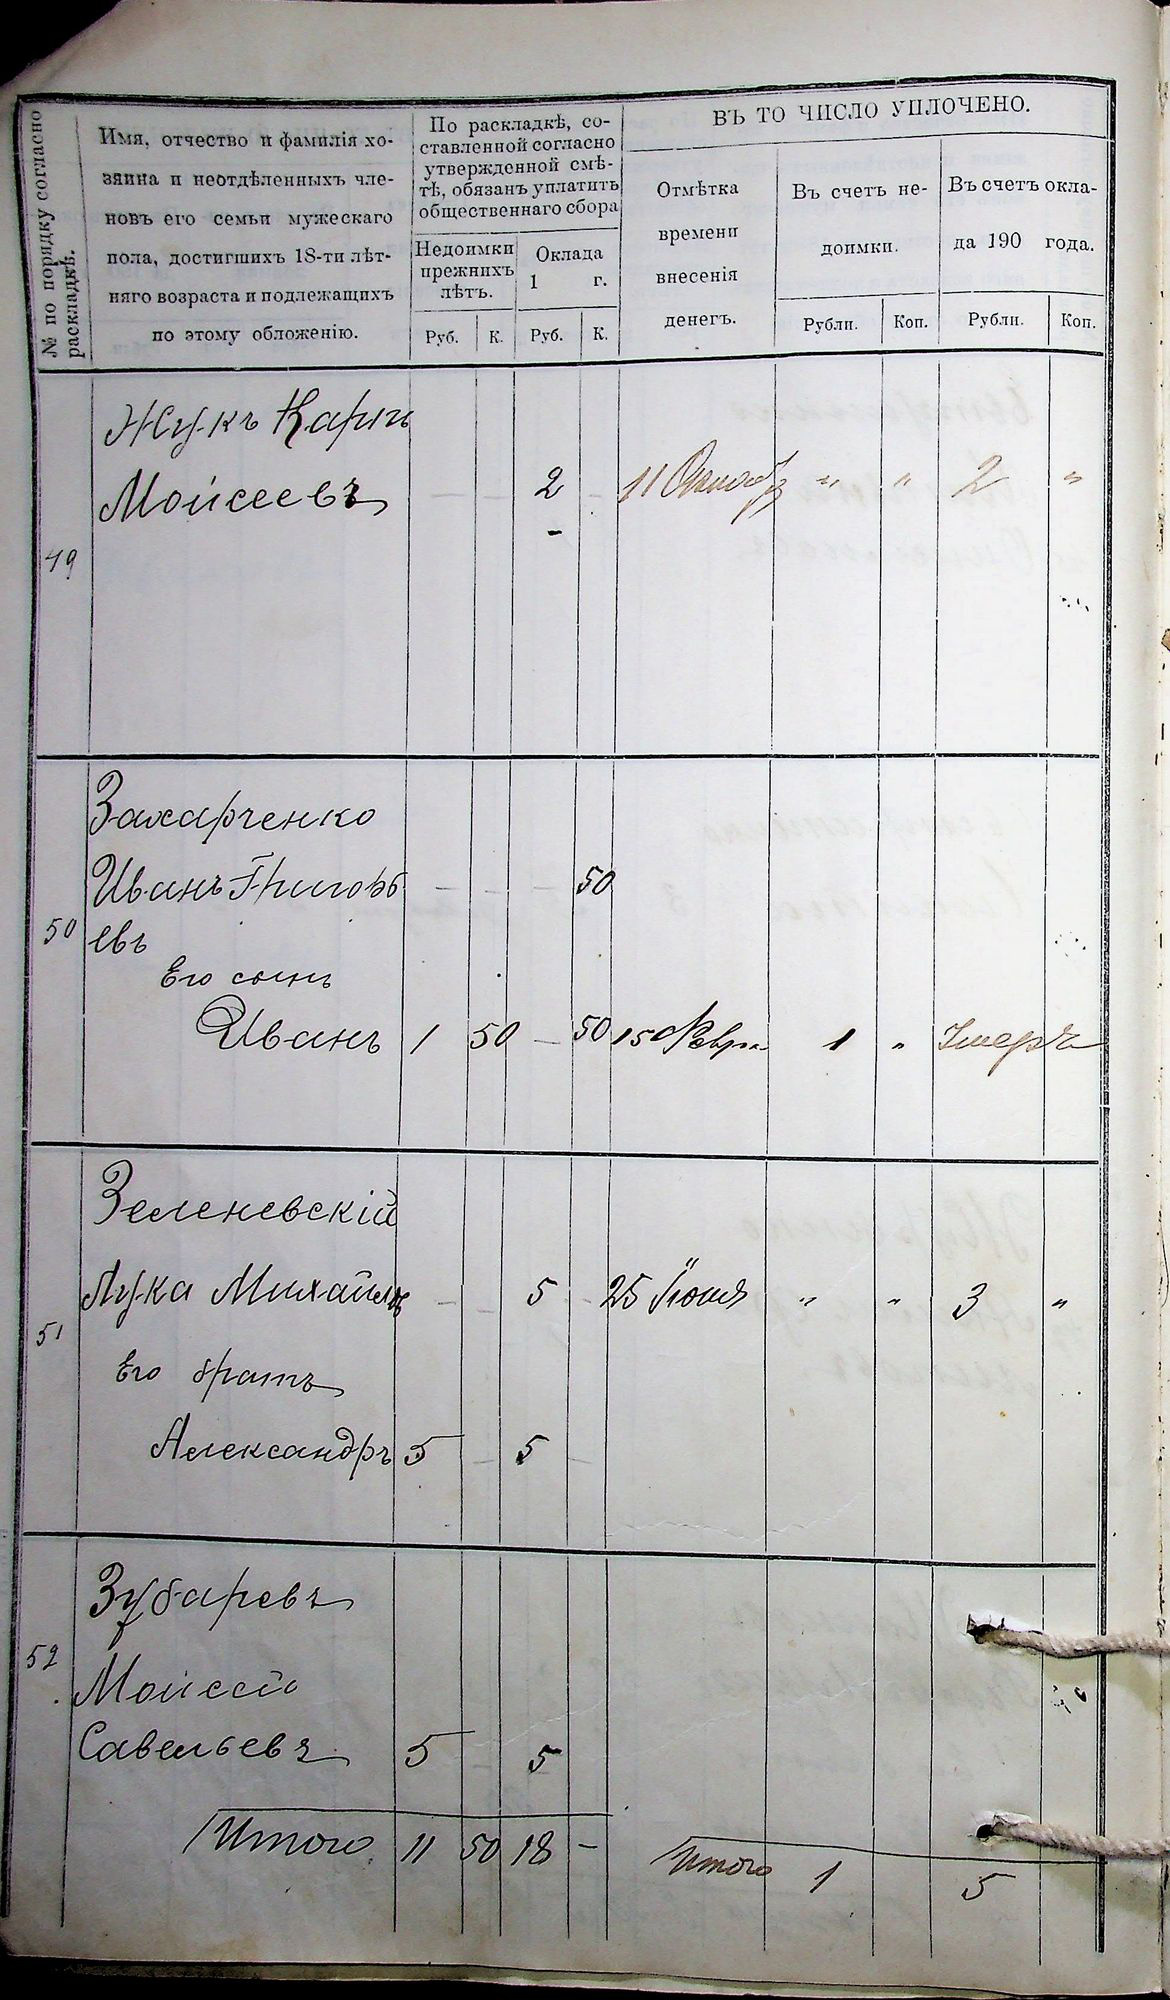 № по порядку согласно
раскладкѣ.
Имя, отчество и фамилія хо-
зяина и неотдѣленныхъ чле-
новъ его семьи мужескаго
пола, достигшихъ 18-ти лѣт-
няго возраста и подлежащихъ
по этому обложенію.
По раскладкѣ, со-
ставленной согласно
утвержденной смѣ-
тѣ, обязанъ уплатить
общественнаго сбора
Недоимки
прежнихъ
лѣтъ.
Оклада
1 г.
Руб. К. Руб. К.
ВЪ ТО ЧИСЛО УПЛОЧЕНО.
Отмѣтка
времени
внесенія
денегъ.
Въ счетъ не-
доимки.
Въ счетъ окла-
да 190 года.
Рубли. Коп. Рубли. Коп.
49
Жукъ Карпъ
Моисеевъ — — 2 — 11 Октобр " " 2 "
50
Захарченко
Иванъ Григорь — — — 50
евъ
Его сынъ
Иванъ 1 50 — 50 15 Февра 1 " Умеръ
51
Зеленевскій
Лука Михайловъ — — 5 — 25 Іюня " " 3 "
Его братъ
Александръ 5 — 5 —
52
Зубаревъ
Моисей
Савельевъ 5 — 5
Итого 11 50 18 — Итого 1 5